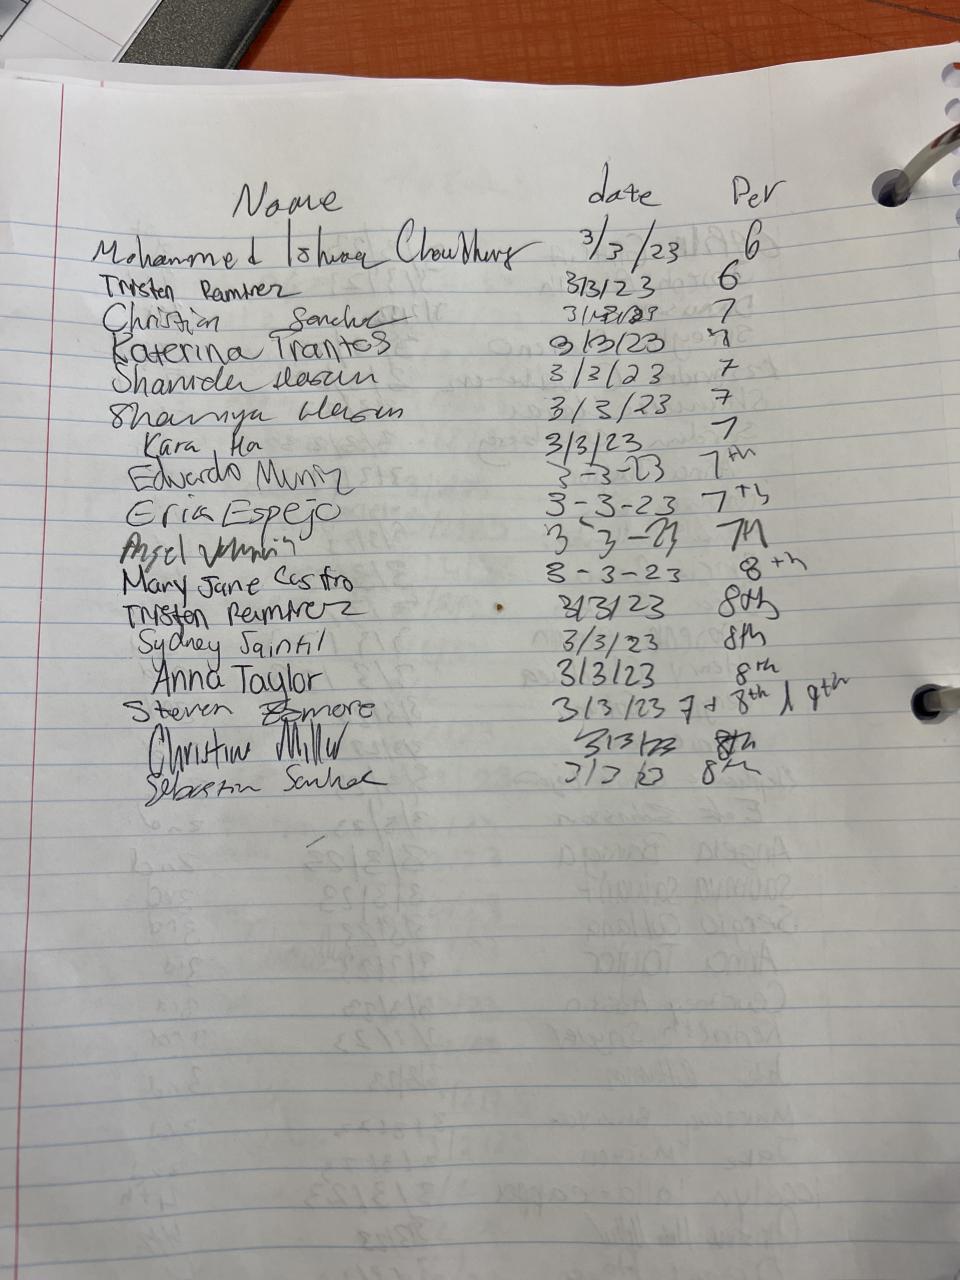 Name date Per
Mohammed Ishraq Choudhury 3/3/23 6
Trysten Ramirez 3/3/23 6
Christian Sanchez 7
Katerina Trantos 3/3/23 7
Shamida Hasan 3/3/23 7
Shamya Hasan 3/3/23 7
Kara Ha 3/3/23 7
Edwardo Muniz 3-3-23 7th
Erica Espejo 3-3-23 7th
Angel 3-3-23 7th
Mary Jane Castro 3-3-23 8th
Trysten Ramirez 3/3/23 8th
Sydney Saintil 3/3/23 8th
Anna Taylor 3/3/23 8th
Steven Esmore 3/3/23 7+ 8th / 9th
Christine Miller 3/3/23 8th
Sebastian Sanchez 3/3/23 8th